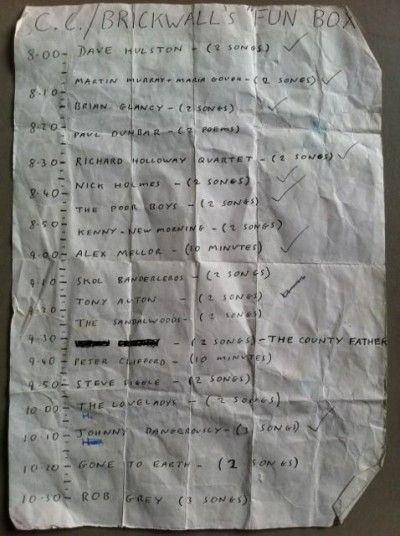 S.C.C./BRICKWALL'S "FUN BOX
8-00- DAVE HULSTON - (2 SONGS)
MARTIN MURRAY + MARIA GOUGH - (2 SONGS)
8.10-
BRIAN GLANCY - (2 SONGS)
8-20-
PAUL DUNBAR - (2 POEMS)
8.30- RICHARD HOLLOWAY QUARTET - (2 SONGS)
NICK HOLMES - (2 SONGS)
8-40-
THE POOR BOYS - (2 SONGS)
8.50- KENNY - NEW MORNING - (2 SONGS)
9-00- ALEX MELLOR - (10 MINUTES)
9.10- SKOL BANDERLEROS - (2 SONGS)
TONY AUTON - (2 SONGS)
9-20-
THE SANDALWOODS - (2 SONGS)
9-30- (2 SONGS) - THE COUNTY FATHER
9-40- PETER CLIFFORD - (10 MINUTES)
9.50- STEVE DIGGLE - (2 SONGS)
10.00- THE LOVELADYS - (2 SONGS)
10.10- JOHNNY DANGEROUSLY - (3 SONGS)
10-20- GONE TO EARTH - (2 SONGS)
10-30- ROB GREY (3 SONGS)